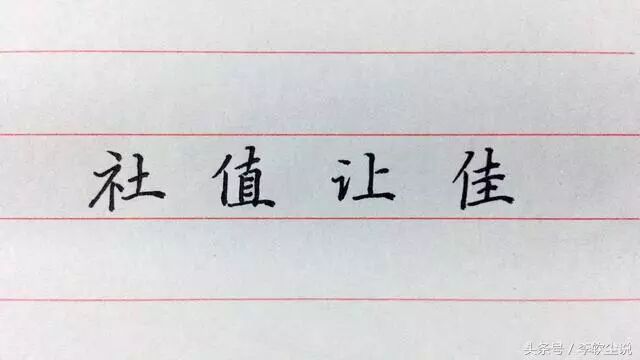 社值让佳
头条号／李软尘说